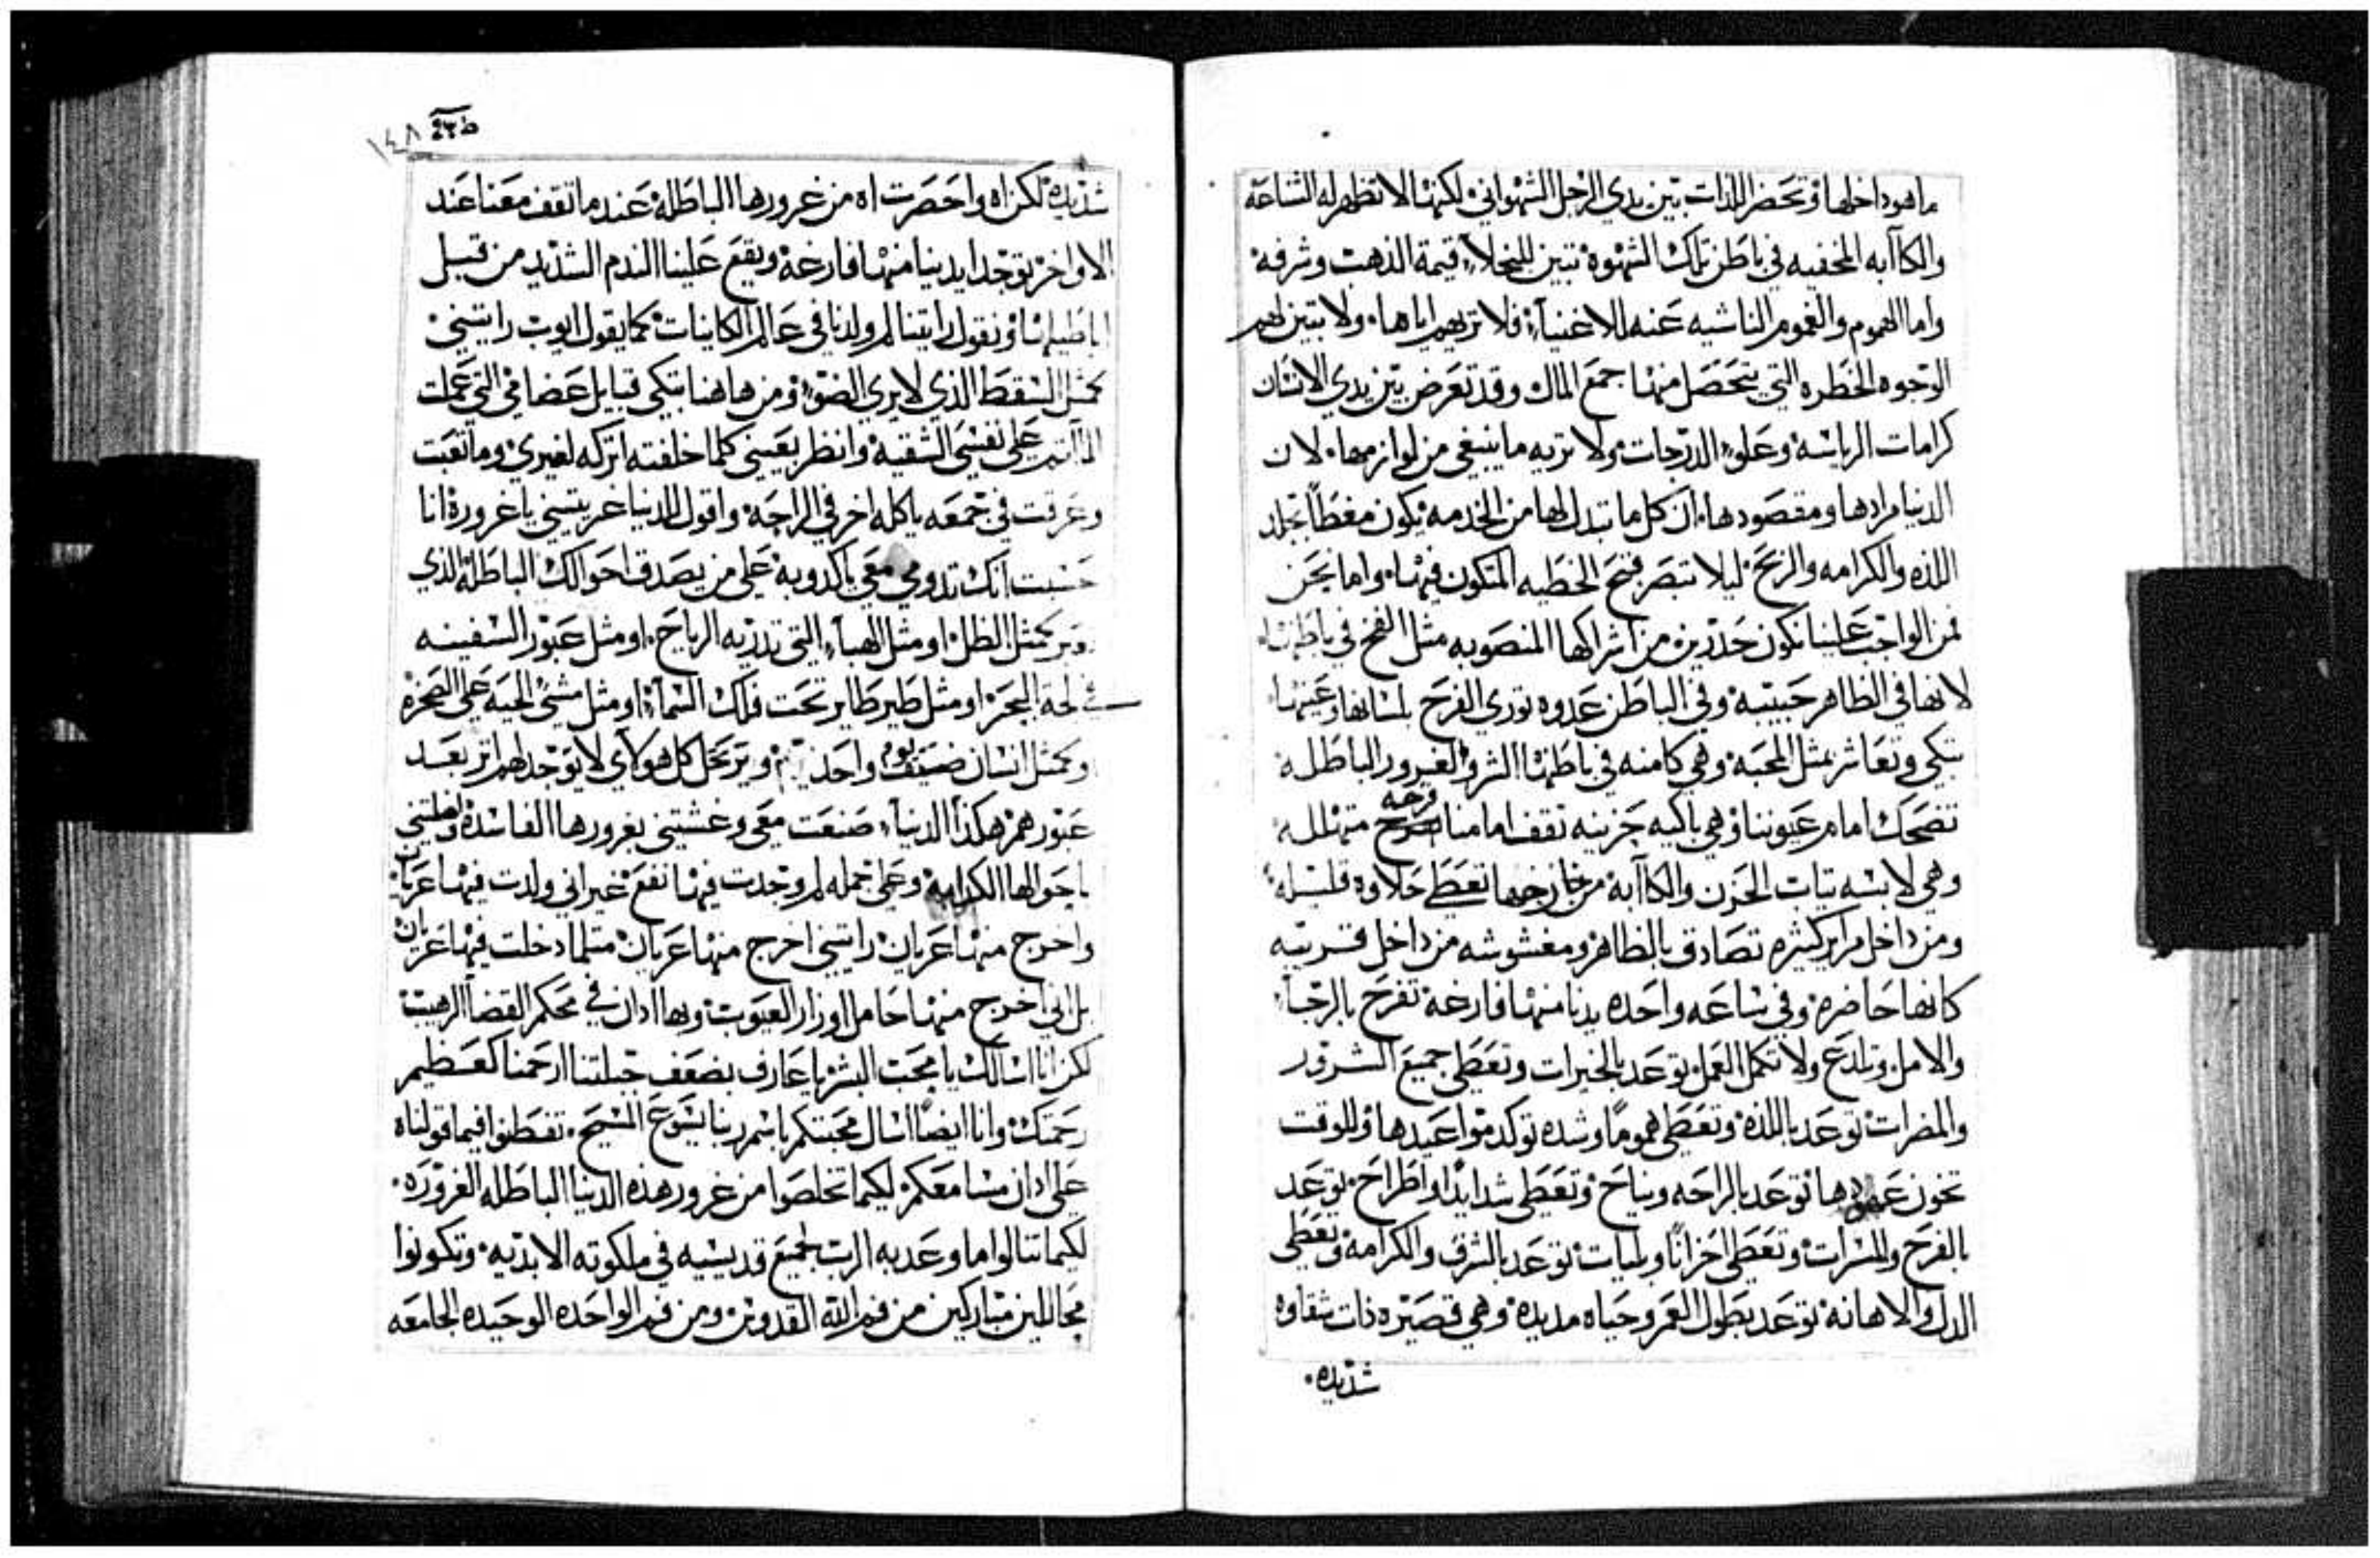 ما هو داخلها وتحضر اللذات بين يدي الرجل الشهواني لكنها لا تظهر له الشاعة
والكاآبه المخفيه في باطن تلك الشهوة تبين للبخلاء قيمة الذهب وشرفه
واما الهموم والغموم الناشيه عنه للاغنياء فلا تريهم اياها ولا تبين لهم
الوجوه الخطره التي يتحصل منها جمع المال وقد تعرض بين يدي الانسان
كرامات الرياسة وعلو الدرجات ولا تريه ما ينبغي من لوازمها لان
الدنيا مرادها ومقصودها ان كل ما تبدل لها من الخدمه يكون مغطا بجلد
اللذه والكرامه والربح ليلا تبصر فتح الخطيه المتكون فيها واما نحن
فمن الواجب علينا نكون حدرين من اشراكها المنصوبه مثل الفخ في باطنها
لانها في الظاهر حبيبة وفي الباطن عدوه توري الفرح بلسانها وعينها
تبكي وتعاشر بمثل المحبة وهي كامنه في باطنها الشر والغرور الباطلة
تضحك امام عيوننا وهي باكيه حزينه تقف امامنا فرحه متهللة
وهي لابسه تياب الحزن والكاآبة من خارجها تعطي حلاوه قليله
ومن داخل مراير كثيره تصادق بالظاهر ومغشوشه من داخل قريبه
كانها حاضره وفي ساعه واحده يدنا منها فارغة تفرح بالرجاء
والامل وتلدع ولا تكمل العمل توعد بالخيرات وتعطي جميع الشرور
والمضرات توعد باللذه وتعطي هموما وشده توكد مواعيدها وللوقت
تخون عهودها توعد بالراحه ونياح وتعطي شدايدا واطراح توعد
بالفرح والمسرات وتعطي احزانا وبليات توعد بالشرف والكرامة وتعطي
الدل والاهانة توعد بطول العمر وحياه مديدة وهي قصيره ذات شقاوه
شديده
ط٢٣ ١٤٨
شديدة لكن اه واحصرتاه من غرورها الباطلة عندما تقف معنا عند
الاواخر توجد ايدينا منها فارغة ويقع علينا الندم الشديد من قبل
اباطيلها ونقول رايتنا لم ولدنا في عالم الكاينات كما يقول ايوب رايتني
كمثل السقط الذي لا يري الضو ومن هاهنا تبكي قبايل عضامي التي عملت
المآتم علي نفسي الشقية وانظر بعيني كلما خلفته اتركه لغيري وما تعبت
وعرقت في جمعه ياكله اخر في الراحة واقول للدنيا غريتيني يا غرورة انا
حسبت انك تدومي معي ياكدوبة علي من يصدق احوالك الباطلة الذي
تبر كمثل الظل او مثل الهباء التي تدريه الرياح او مثل عبور السفينه
في لجة البحر او مثل طير طاير تحت فلك السماء او مثل مشي الحية علي الصخره
وكمثل انسان ضيف يوم واحد ويرتحل كل هولاي لا يوجد لهم اتر بعد
عبورهم هكذا الدنيا صنعت معي وغشتني بغرورها الفاسدة
باحوالها الكدابة وعلي جمله لم وجدت فيها نفع غير اني ولدت فيها عريان
واخرج منها عريان رايتني اخرج منها عريان متلما دخلت فيها عريان
بل اني اخرج منها حامل اوزار العيوب وبها ادان في محكم القضا الرهيب
لكن انا اسالك يا محب البشر يا عارف بضعف جبلتنا ارحمنا كعظيم
رحمتك وانا ايضا اسال محبتكم باسم ربنا يسوع المسيح تفطنوا فيما قولناه
علي ادان مسامعكم لكيما تخلصوا من غرور هذه الدنيا الباطله الغروره
لكيما تنالوا ما وعد به الرب لجميع قديسيه في ملكوته الابديه وتكونوا
محاللين مباركين من فم الله القدوس ومن فم الواحده الوحيده الجامعه